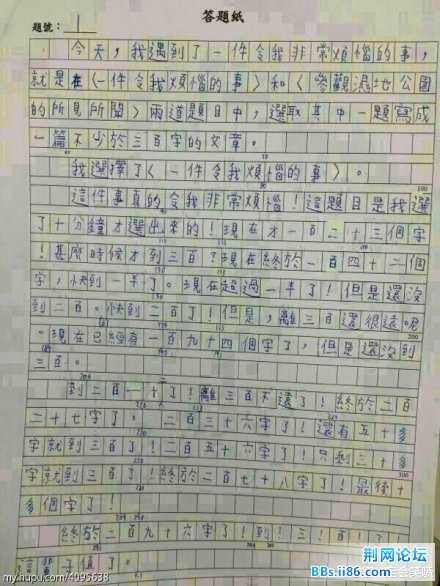 答題紙
題號：1
今天，我遇到了一件令我非常煩惱的事，
就是在〈一件令我煩惱的事〉和〈參觀濕地公園
的所見所聞〉兩道題目中，選取其中一題寫成
一篇不少於三百字的文章。
我選擇了〈一件令我煩惱的事〉。
這件事真的令我非常煩惱！這題目是我選
了十分鐘才選出來的！現在才一百二十三個字
！甚麼時候才到三百？現在終於一百四十二個
字，快到一半了。現在超過一半了！但是還沒
到二百。快到二百了！但是，離三百還很遠。
。現在已經有一百九十四個字了，但是還沒到
三百。
到二百一十了！離三百不遠了！終於二百
二十七字了。二百三十六字了！還有五十多
字就到三百了！二百五十六字了！只剩三十多
字就到三百了！終於二百七十八字了！最後十
多個字了！
終於二百九十六字了！到！三！百！了！
my.hupu.com/4095638
荆网论坛
BBs.ii86.com